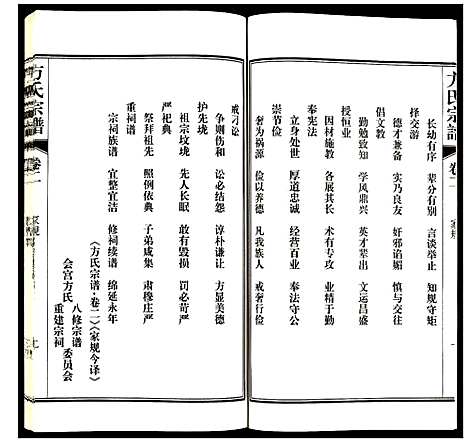 方氏宗譜
卷二
家規
长幼有序 辈分有别 言谈举止 知规守矩
择交游
德才兼备 实乃良友 奸邪谄媚 慎与交往
倡文教
勤勉致知 学风鼎兴 英才辈出 文运昌盛
授恒业
因材施教 各展其长 术有专攻 业精于勤
奉宪法
立身处世 厚道忠诚 经营百业 奉法守公
崇节俭
奢为祸源 俭以养德 凡我族人 戒奢行俭
戒习讼
争则伤和 讼必结怨 谆朴谦让 方显美德
护先垅
祖宗坟垅 先人长眠 敢有毁损 罚必苛严
严祀典
祭拜祖先 照例依典 子弟咸集 肃穆庄严
重祠谱
宗祠族谱 宜整宜洁 修祠续谱 绵延永年
《方氏宗谱·卷二》《家规今译》
会宫方氏 八修宗谱 重建宗祠 委员会
方氏宗譜
卷二